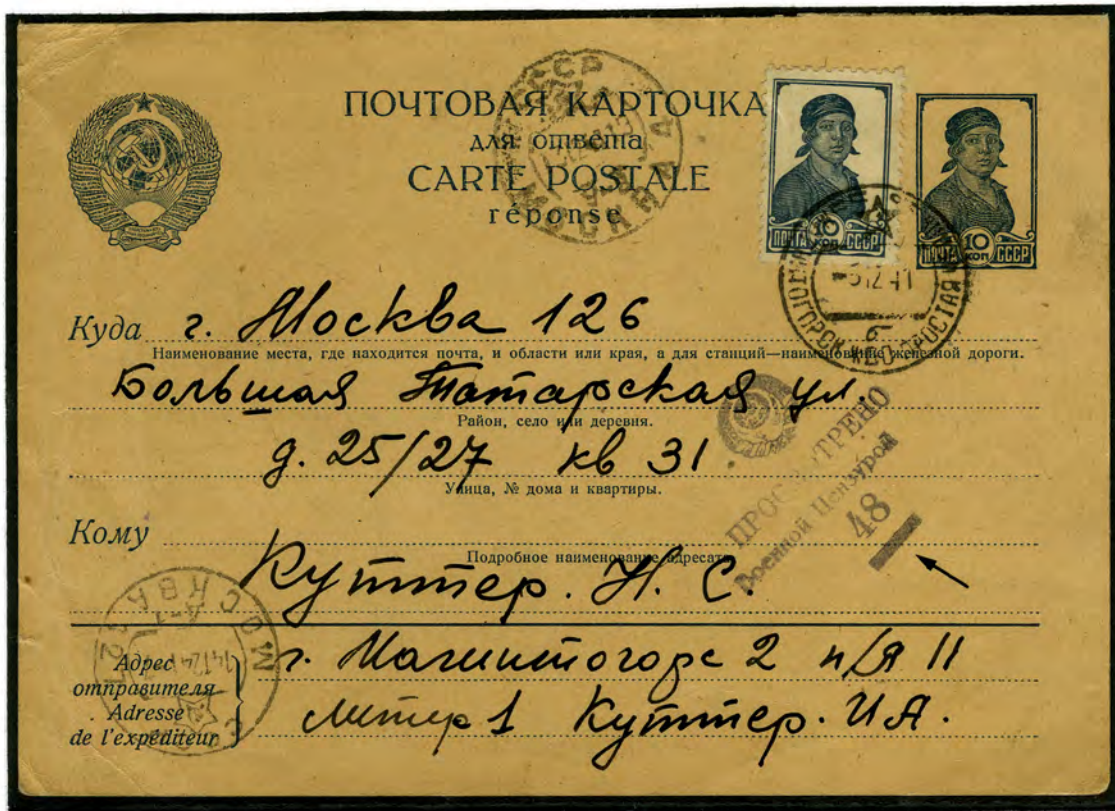 ПОЧТОВАЯ КАРТОЧКА
для ответа
CARTE POSTALE
réponse
ПОЧТА 10 КОП СССР
ПОЧТА 10 КОП СССР
СССР
МОСКВА
5 12 41
ПРОСТАЯ
Куда г. Москва 126
Наименование места, где находится почта, и области или края, а для станций—наименование железной дороги.
Большая Татарская ул.
Район, село или деревня.
д. 25/27 кв 31
Улица, № дома и квартиры.
ПРОСМОТРЕНО
Военной Цензурой
48
Кому
Подробное наименование адресата
Куттер. Н. С.
МОСКВА
Адрес отправителя
Adresse de l'expéditeur
г. Магнитогорс 2 п/я 11
литер 1 Куттер. И.А.